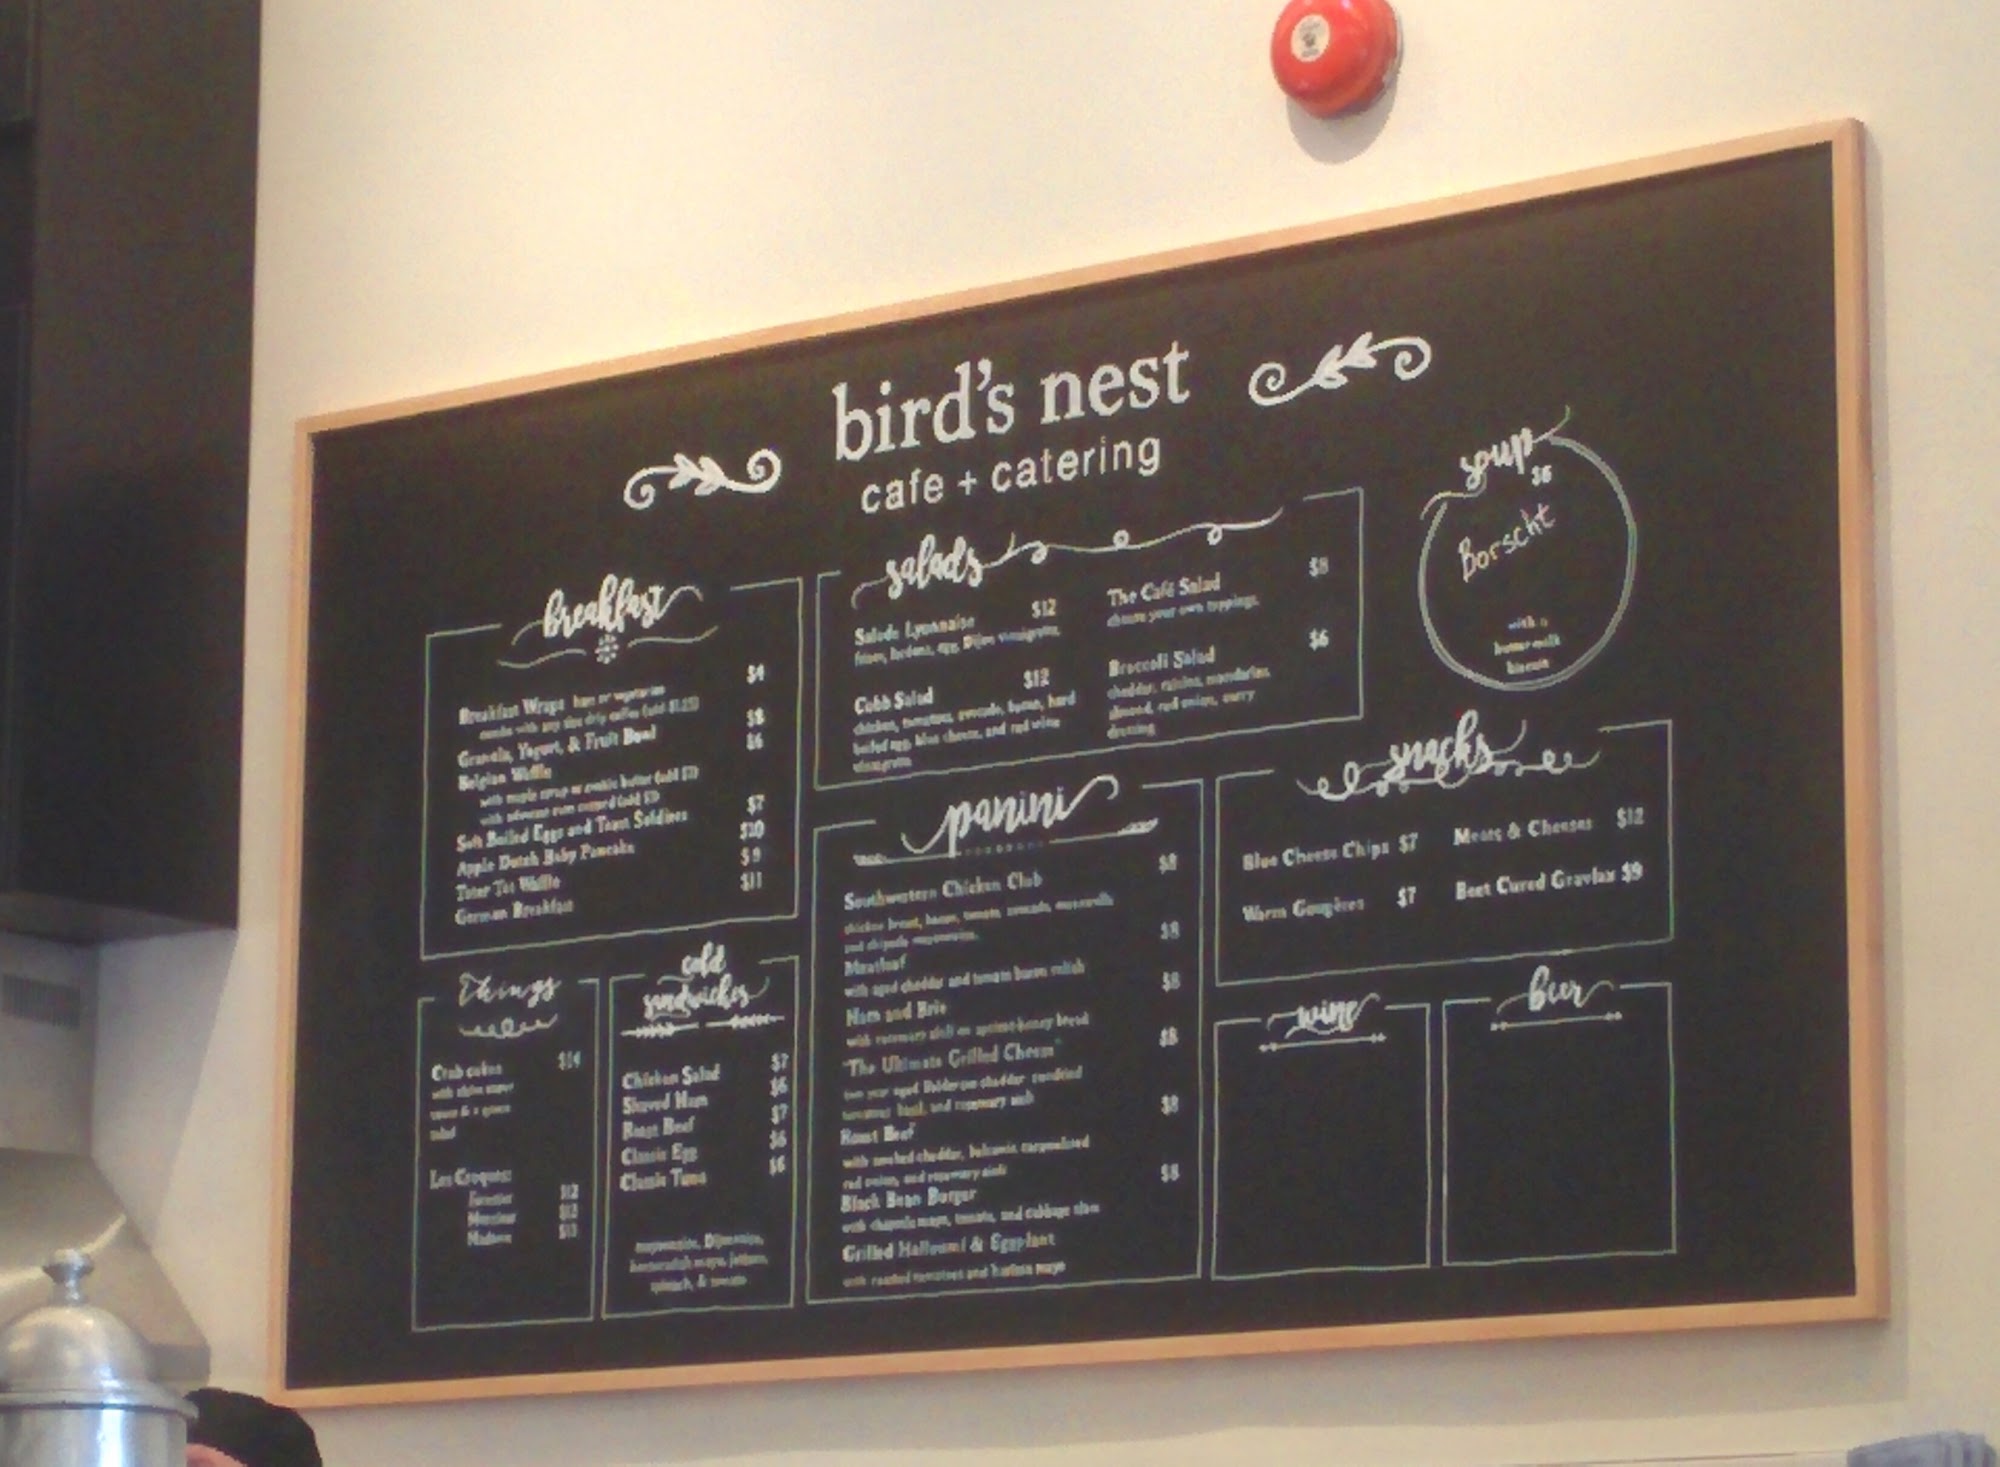 bird's nest
cafe + catering
soup
$6
Borscht
with a
buttermilk
biscuit
breakfast
Breakfast Wraps ham or vegetarian $4
combo with any size drip coffee (add $1.25)
Granola, Yogurt, & Fruit Bowl $8
Belgian Waffle $6
with maple syrup or cookie butter (add $2)
Soft Boiled Eggs and Toast Soldiers $7
Apple Dutch Baby Pancake $10
Tater Tot Waffle $9
German Breakfast $11
salads
Salade Lyonnaise $12
frisee, lardons, egg, Dijon vinaigrette
Cobb Salad $12
chicken, tomatoes, avocado, bacon, hard
boiled egg, blue cheese, and red wine
vinaigrette
The Café Salad $8
choose your own toppings
Broccoli Salad $6
cheddar, raisins, mandarins,
almond, red onion, curry
dressing
panini
Southwestern Chicken Club $8
chicken breast, bacon, tomato, avocado, mozzarella
and chipotle mayonnaise
Meatloaf $8
with aged cheddar and tomato bacon relish
Ham and Brie $8
with rosemary aioli on apricot honey bread
"The Ultimate Grilled Cheese" $8
two year aged Balderson cheddar
tomatoes basil, and rosemary aioli
Roast Beef $8
with smoked cheddar, balsamic caramelized
red onion, and rosemary aioli
Black Bean Burger $8
with chipotle mayo, tomato, and cabbage slaw
Grilled Halloumi & Eggplant
with roasted tomatoes and harissa mayo
snacks
Blue Cheese Chips $7
Meats & Cheeses $12
Warm Gougères $7
Beet Cured Gravlax $9
Things
Crab cakes $14
salad
Les Croques:
Forestier $12
Monsieur $12
Madame $13
cold
sandwiches
Chicken Salad $7
Shaved Ham $6
Roast Beef $7
Classic Egg $6
Classic Tuna $6
mayonnaise, Dijonnaise,
horseradish mayo, lettuce,
spinach, & tomato
wine
beer